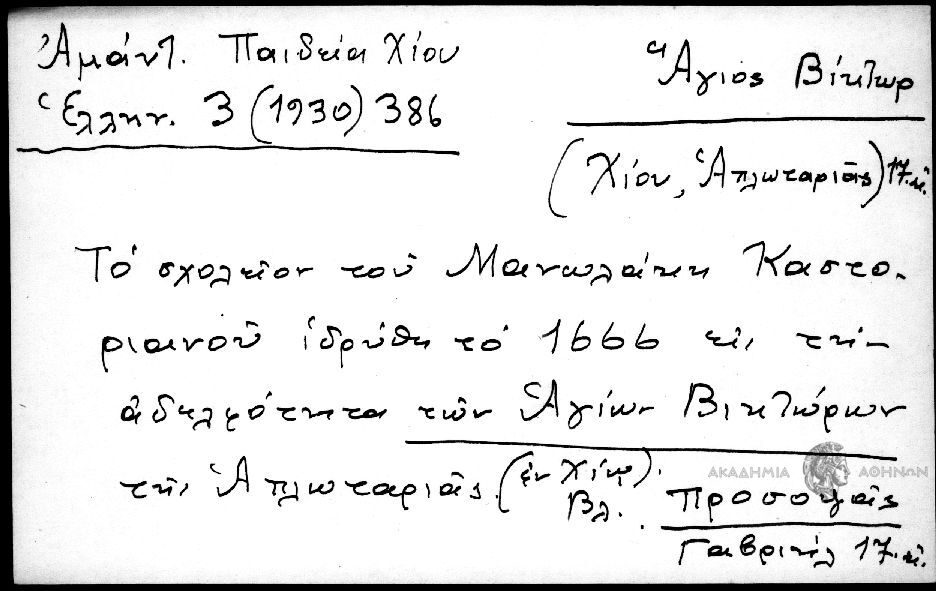 Ἀμάντ. Παιδεία Χίου
Ἑλλην. 3 (1930) 386
Ἅγιος Βίκτωρ
(Χίου, Ἁπλωταριᾶς) 17.κ̃.
Τὸ σχολεῖον τοῦ Μανωλάκη Καστο-
ριανοῦ ἱδρύθη τὸ 1666 εἰς τὴν
ἀδελφότητα τῶν Ἁγίων Βικτώρων
τῆς Ἁπλωταριᾶς (ἐν Χίῳ).
Βλ. Προσοψᾶς
Γαβριήλ 17.κ̃.
ΑΚΑΔΗΜΙΑ ΑΘΗΝΩΝ